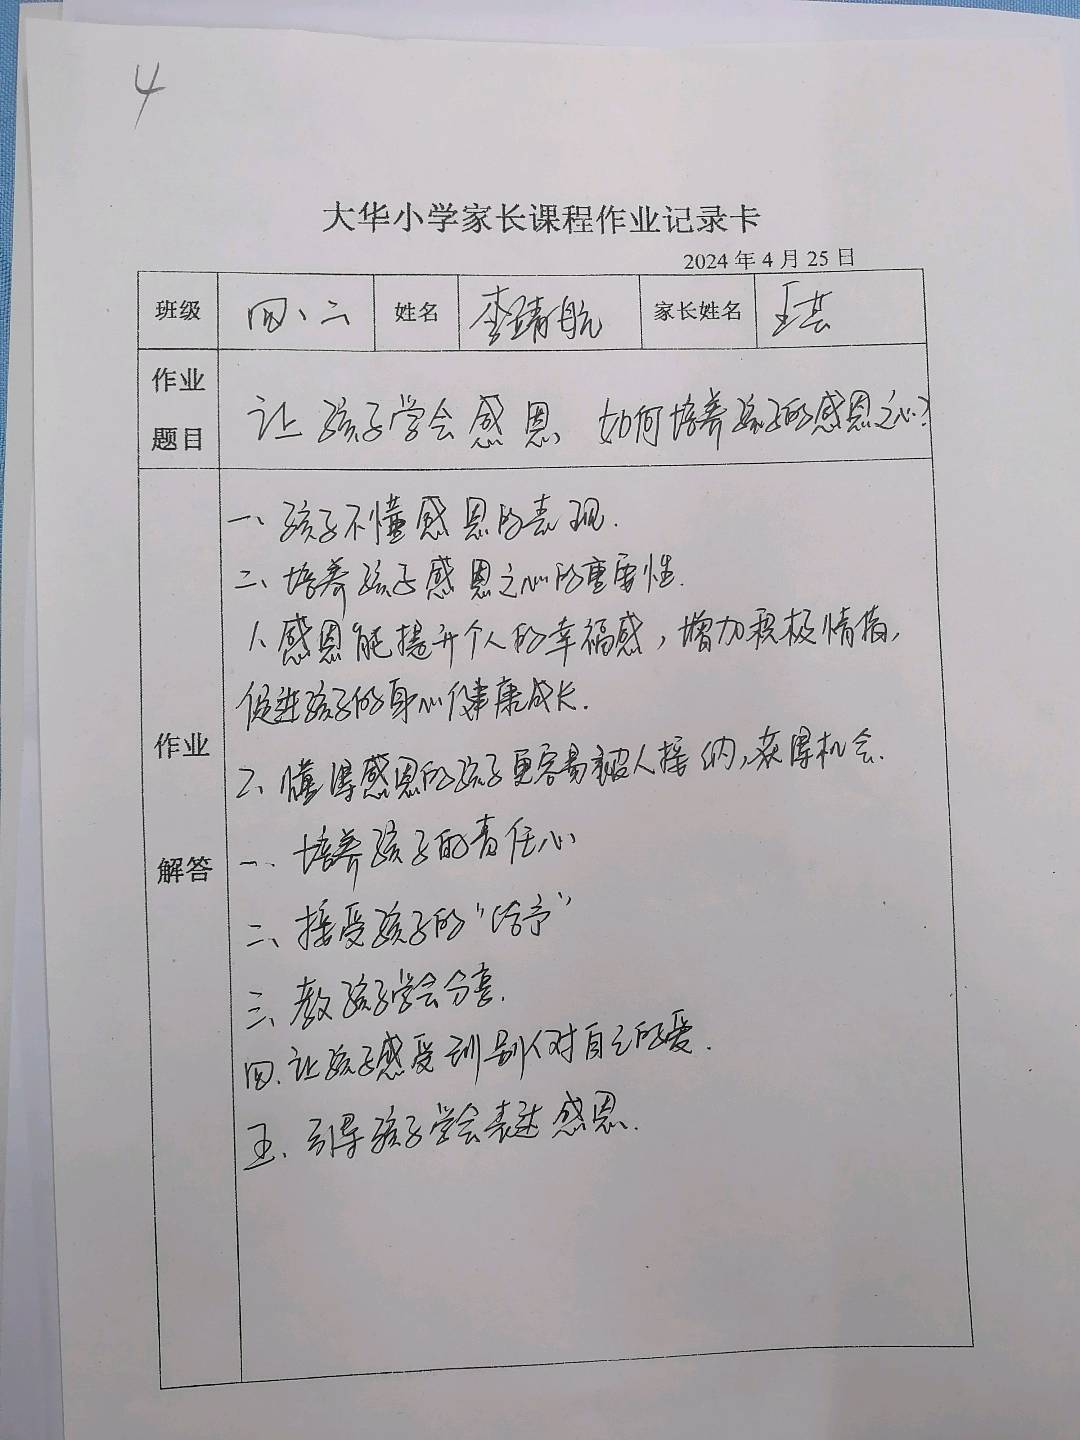 4
大华小学家长课程作业记录卡
2024年4月25日
班级 四、二 姓名 李靖航 家长姓名 王芸
作业题目 让孩子学会感恩、如何培养孩子的感恩之心?
作业解答
一、孩子不懂感恩的表现.
二、培养孩子感恩之心的重要性.
1、感恩能提升个人的幸福感，增加积极情绪，
促进孩子的身心健康成长.
2、懂得感恩的孩子更容易被人接纳，获得机会.
一、培养孩子的责任心
二、接受孩子的“给予”
三、教孩子学会分享.
四、让孩子感受到别人对自己的爱.
五、引导孩子学会表达感恩.